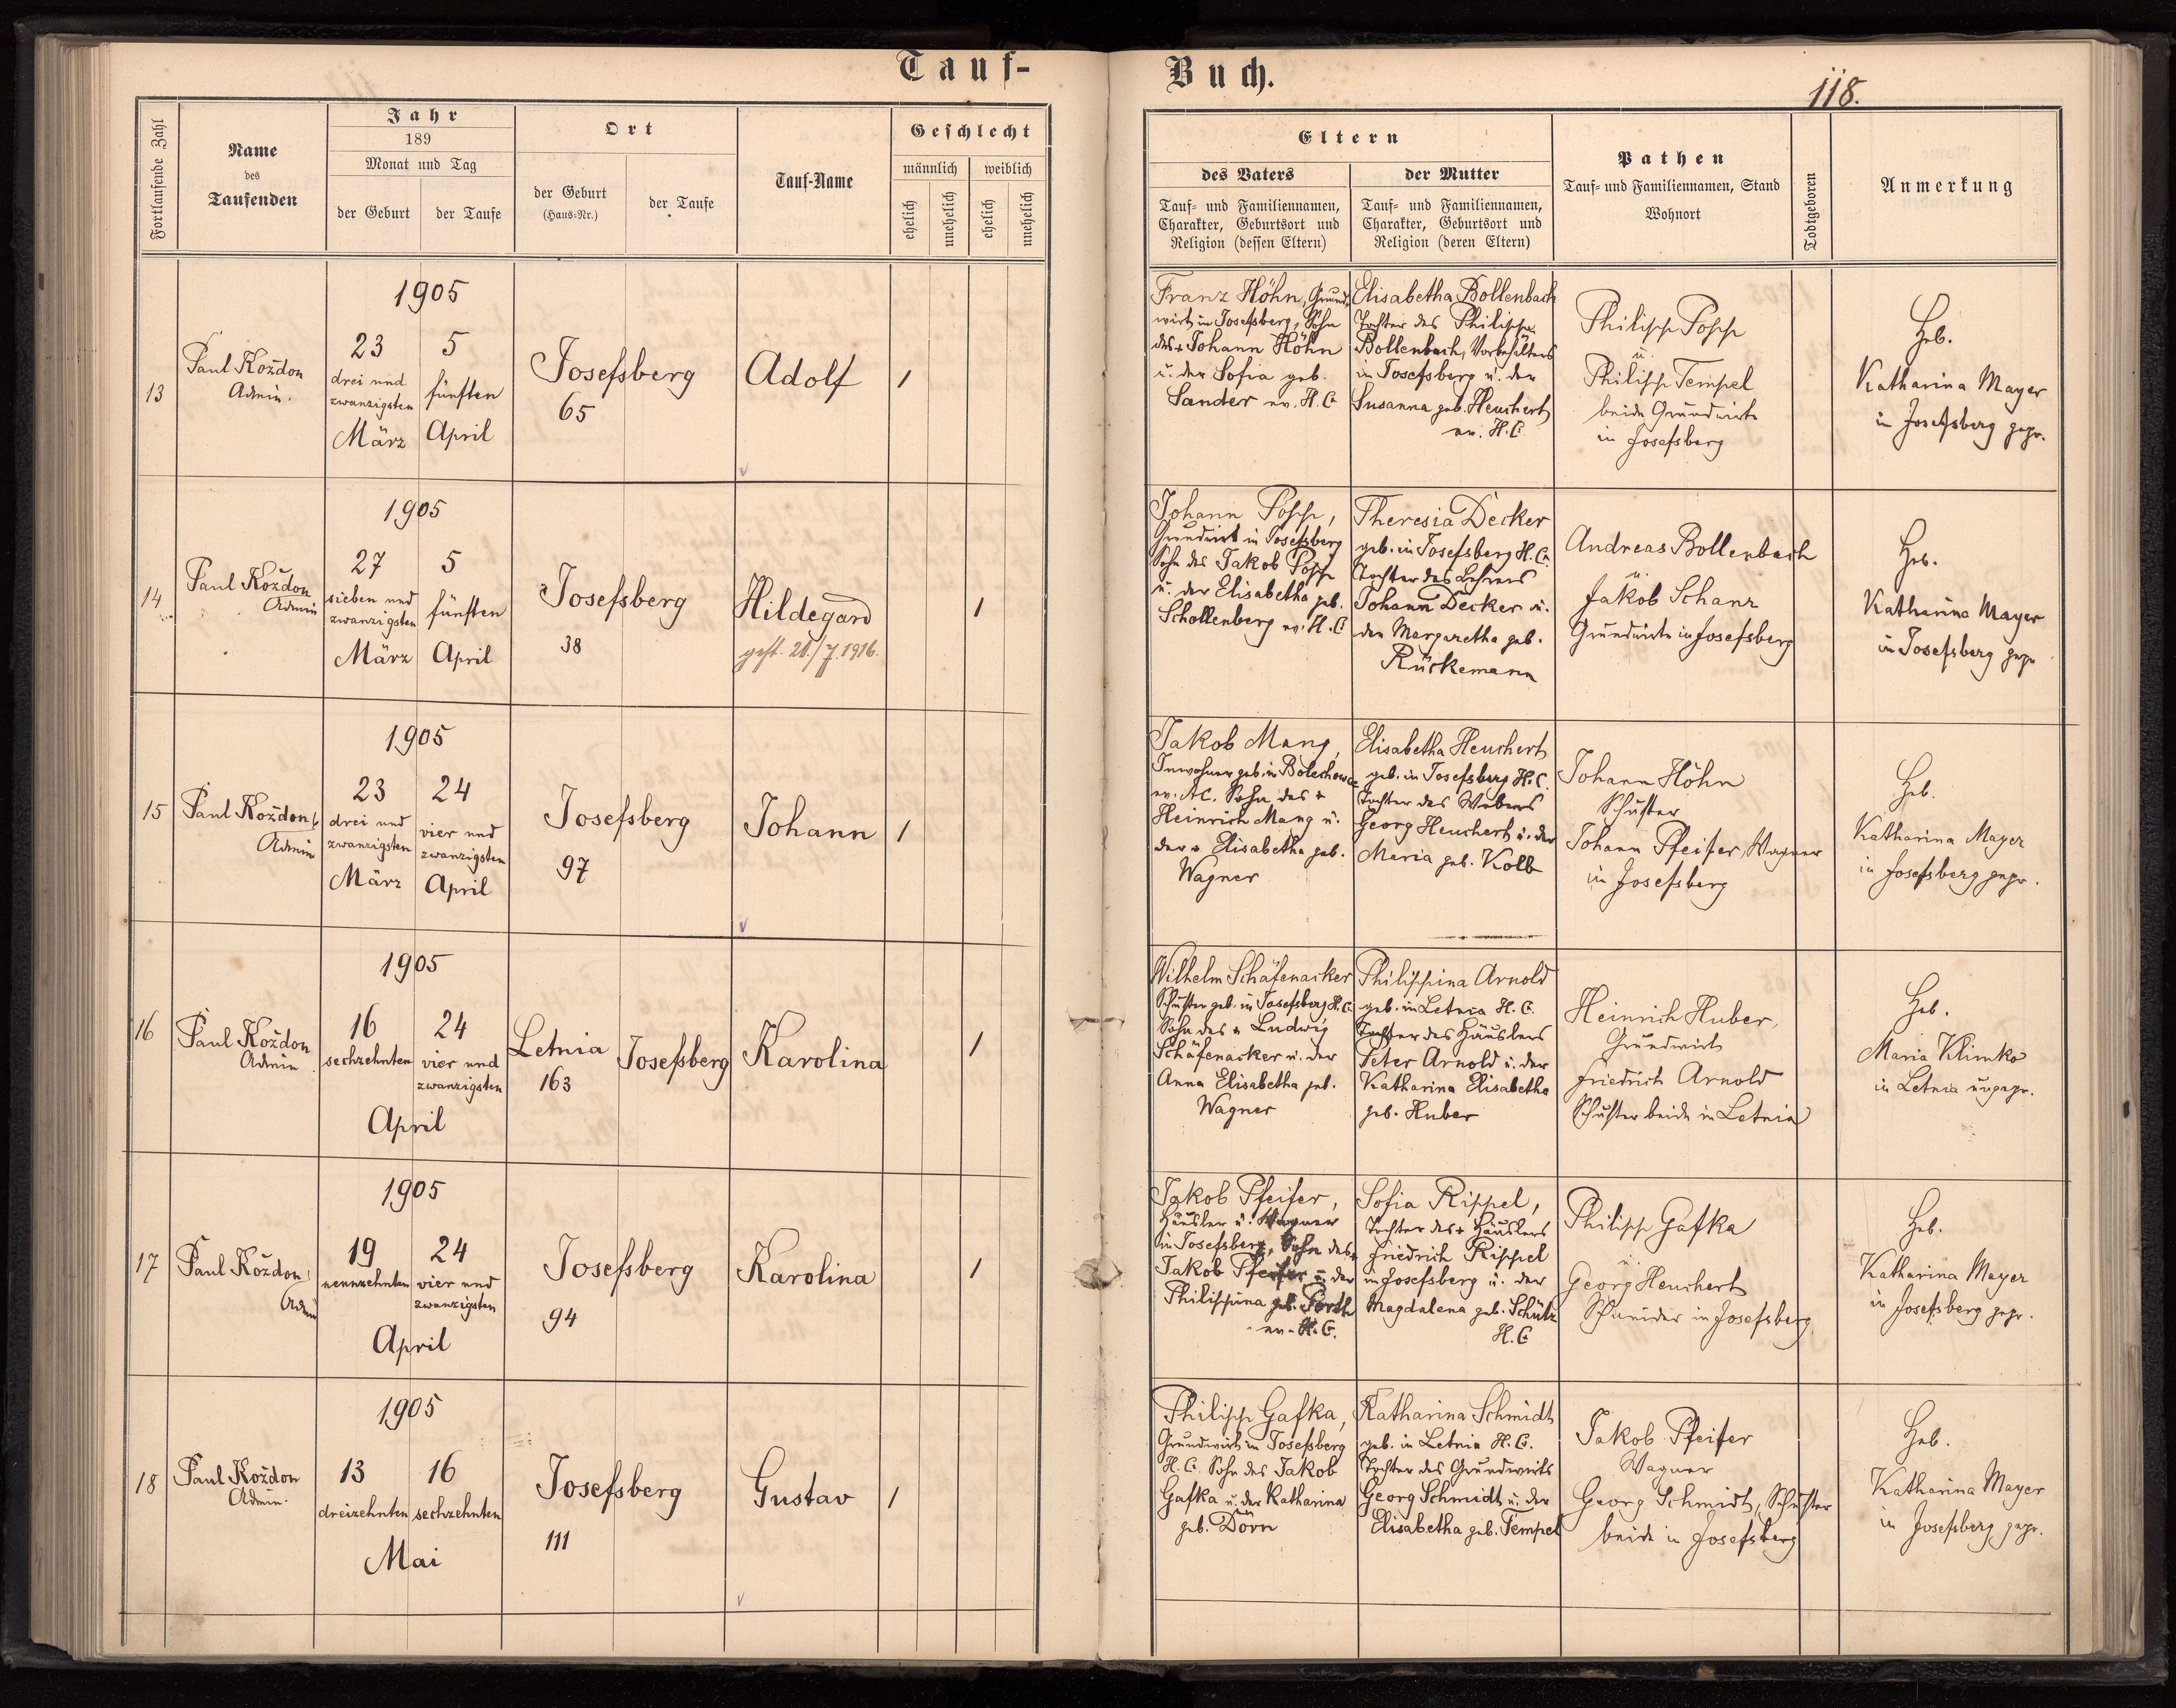 Tauf-
Buch.
118.
Fortlaufende Zahl
Name
des
Taufenden
Jahr
189
Monat und Tag
der Geburt
der Taufe
Ort
der Geburt
(Haus-Nr.)
der Taufe
Tauf-Name
Geschlecht
männlich
weiblich
ehelich
unehelich
ehelich
unehelich
Eltern
des Vaters
Tauf- und Familiennamen,
Charakter, Geburtsort und
Religion (dessen Eltern)
der Mutter
Tauf- und Familiennamen,
Charakter, Geburtsort und
Religion (deren Eltern)
Pathen
Tauf- und Familiennamen, Stand
Wohnort
Todtgeboren
Anmerkung
13
Paul Kożdon
Admin.
1905
23
drei und
zwanzigsten
März
5
fünften
April
Josefsberg
65
Adolf
1
Franz Höhn, Grund-
wirt in Josefsberg, Sohn
des + Johann Höhn
u. der Sofia geb.
Sander ev. H.C.
Elisabetha Bollenbach
Tochter des Philipp
Bollenbach, Vorbehälters
in Josefsberg u. der
Susanna geb. Heuchert
ev. H.C.
Philipp Popp
u.
Philipp Tempel
beide Grundwirte
in Josefsberg
Heb.
Katharina Mayer
in Josefsberg gepr.
14
Paul Kożdon
Admin
1905
27
sieben und
zwanzigsten
März
5
fünften
April
Josefsberg
38
Hildegard
gest. 21./7.1916.
1
Johann Popp,
Grundwirt in Josefsberg
Sohn des Jakob Popp
u. der Elisabetha geb.
Schollenberg ev. H.C.
Theresia Decker
geb. in Josefsberg H.C.
Tochter des Lehrers
Johann Decker u.
der Margaretha geb.
Rückemann
Andreas Bollenbach
u.
Jakob Schanz
Grundwirte in Josefsberg
Heb.
Katharina Mayer
in Josefsberg gepr
15
Paul Kożdon
Admin
1905
23
drei und
zwanzigsten
März
24
vier und
zwanzigsten
April
Josefsberg
97
Johann
1
Jakob Mang,
Inwohner geb. in Bolechowce
ev. A.C. Sohn des +
Heinrich Mang u.
der + Elisabetha geb.
Wagner
Elisabetha Heuchert
geb. in Josefsberg H.C.
Tochter des Webers
Georg Heuchert u. der
Maria geb. Kolb
Johann Höhn
Schuster
Johann Pfeifer, Wagner
in Josefsberg
Heb.
Katharina Mayer
in Josefsberg gepr.
16
Paul Kożdon
Admin
1905
16
sechzehnten
24
vier und
zwanzigsten
April
Letnia
163
Josefsberg
Karolina
1
Wilhelm Schäfenacker
Schuster geb. in Josefsberg H.C.
Sohn des + Ludwig
Schäfenacker u. der
Anna Elisabetha geb.
Wagner
Philippina Arnold
geb. in Letnia H.C.
Tochter des Häuslers
Peter Arnold u. der
Katharina Elisabetha
geb. Huber
Heinrich Huber,
Grundwirt
Friedrich Arnold
Schuster beide in Letnia
Heb.
Maria Klimko
in Letnia ungepr.
17
Paul Kożdon
Admin
1905
19
neunzehnten
24
vier und
zwanzigsten
April
Josefsberg
94
Karolina
1
Jakob Pfeifer,
Häusler u. Wagner
in Josefsberg, Sohn des +
Jakob Pfeifer u. der
Philippina geb. Porth
ev. H.C.
Sofia Rippel,
Tochter des + Häuslers
Friedrich Rippel
in Josefsberg u. der
Magdalena geb. Schütz
H.C.
Philipp Gafka
u.
Georg Heuchert
Schneider in Josefsberg
Heb.
Katharina Mayer
in Josefsberg gepr.
18
Paul Kożdon
Admin.
1905
13
dreizehnten
16
sechzehnten
Mai
Josefsberg
111
Gustav
1
Philipp Gafka,
Grundwirt in Josefsberg
H.C. Sohn des Jakob
Gafka u. der Katharina
geb. Dorn
Katharina Schmidt
geb. in Letnia H.C.
Tochter des Grundwirts
Georg Schmidt u. der
Elisabetha geb. Tempel
Jakob Pfeifer
Wagner
Georg Schmidt, Schuster
beide in Josefsberg
Heb.
Katharina Mayer
in Josefsberg gepr.